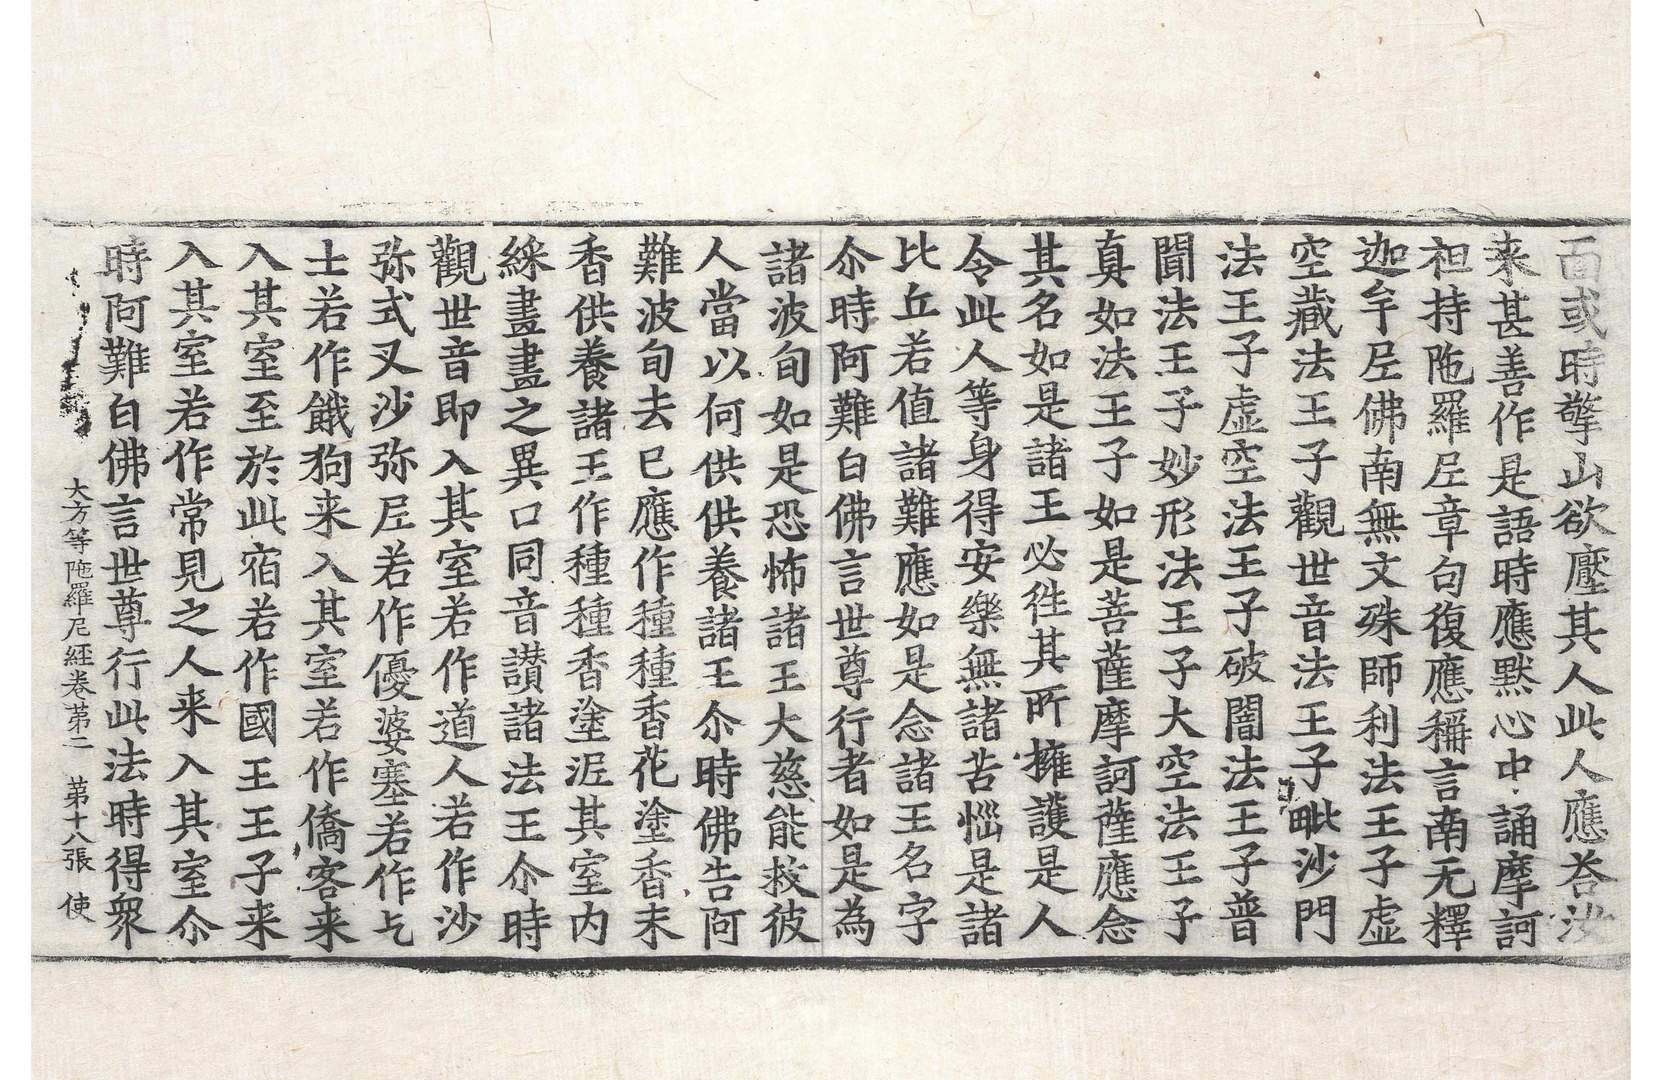 面或時擎山欲壓其人此人應荅汝
来甚善作是語時應默心中誦摩訶
袒持陁羅𡰱章句復應稱言南无釋
迦牟𡰱佛南無文殊師利法王子虛
空藏法王子觀世音法王子毗沙門
法王子虛空法王子破闇法王子普
聞法王子妙形法王子大空法王子
真如法王子如是菩薩摩訶薩應念
其名如是諸王必徃其所擁護是人
令此人等身得安樂無諸苦惱是諸
比丘若值諸難應如是念諸王名字
尒時阿難白佛言世尊行者如是為
諸波旬如是恐怖諸王大慈能救彼
人當以何供供養諸王尒時佛告阿
難波旬去已應作種種香花塗香末
香供養諸王作種種香塗泥其室内
綵畫畫之異口同音讃諸法王尒時
觀世音即入其室若作道人若作沙
弥式叉沙弥𡰱若作優婆塞若作乞
士若作餓狗来入其室若作僑客来
入其室至於此宿若作國王王子来
入其室若作常見之人来入其室尒
時阿難白佛言世尊行此法時得衆
大方等陁羅尼經卷苐二　苐十八張　使